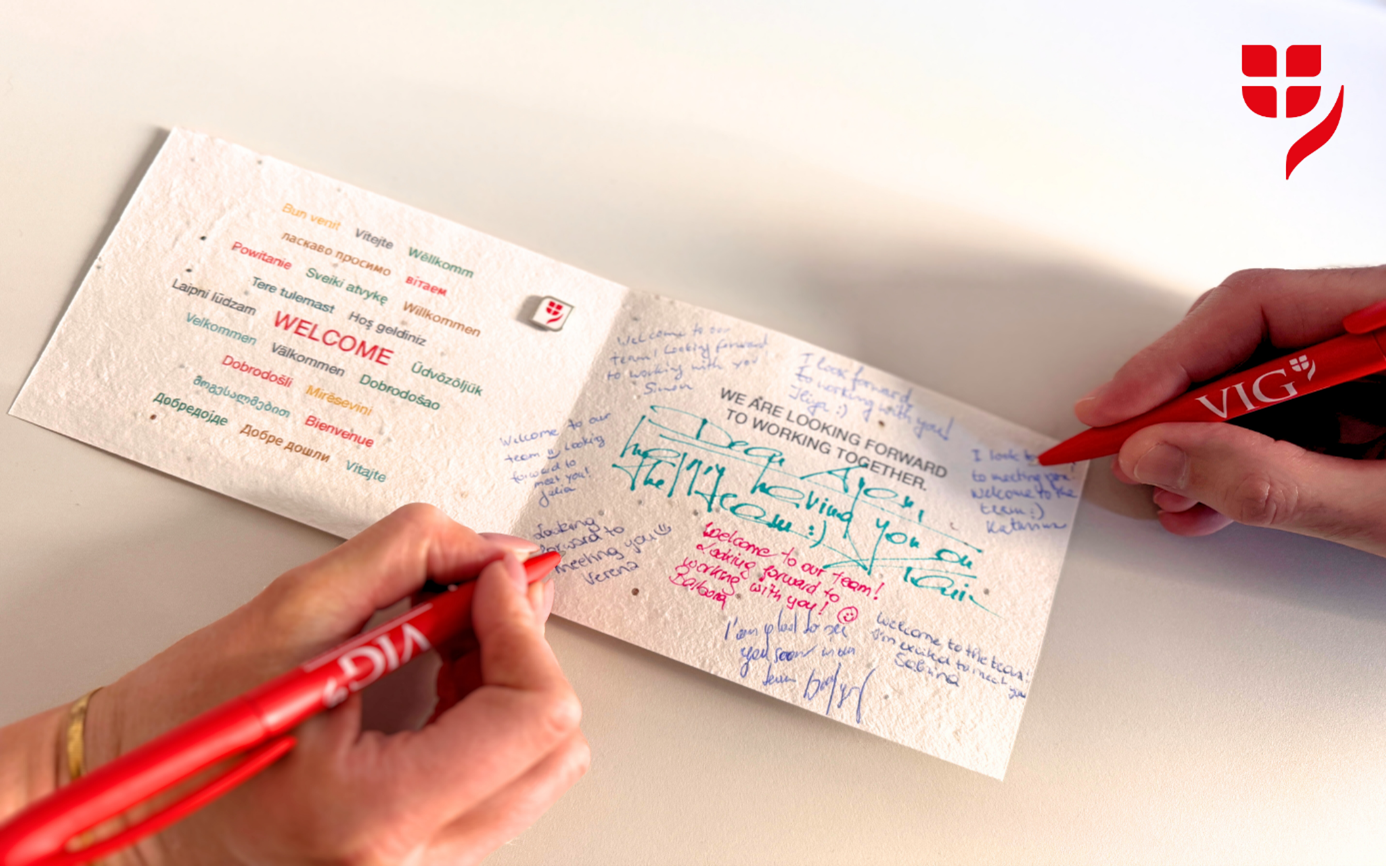 Bun venit Vítejte Wëllkomm
ласкаво просимо вітаем
Powitanie Sveiki atvykę Willkommen
Laipni lūdzam Tere tulemast Hoş geldiniz
Velkommen WELCOME Üdvözöljük
Välkommen
Dobrodošli Mirësevini Dobrodošao
მოგესალმებით Bienvenue
Добредојде Добре дошли Vitajte
Welcome to our
team! Looking forward
to working with you
Simon
I look forward
to working with you!
:)
WE ARE LOOKING FORWARD
TO WORKING TOGETHER.
Welcome to our
team Looking
forward to
meet you!
Julia
Dear
happy having you on
the team :)
I look
to meeting you
Welcome to the
team :)
Katarina
Looking
forward to
meeting you
Verena
Welcome to our team!
Looking forward to
working with you!
Barbara
I'm glad to see
you soon in our
team
Welcome to the team!
I'm excited to meet you
Sabrina
VIG
VIG